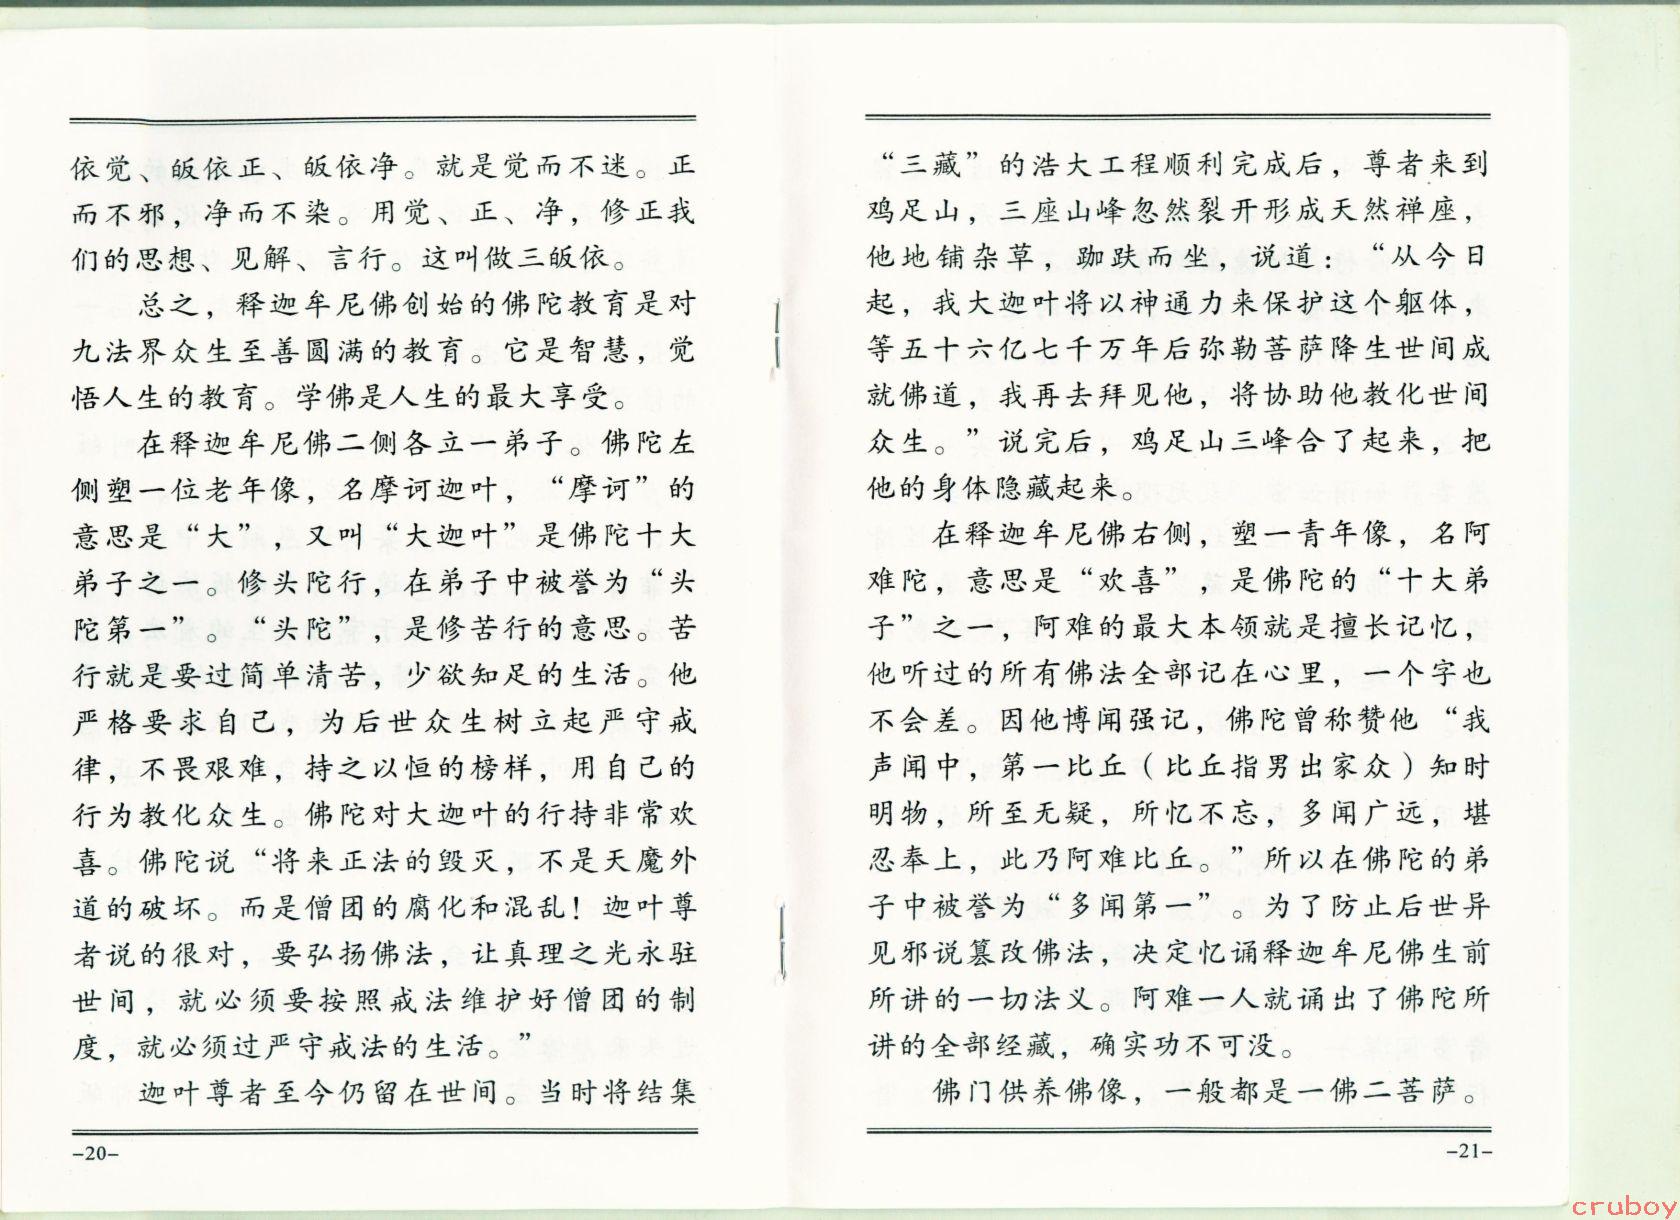 依觉、皈依正、皈依净。就是觉而不迷。正
而不邪，净而不染。用觉、正、净，修正我
们的思想、见解、言行。这叫做三皈依。
总之，释迦牟尼佛创始的佛陀教育是对
九法界众生至善圆满的教育。它是智慧，觉
悟人生的教育。学佛是人生的最大享受。
在释迦牟尼佛二侧各立一弟子。佛陀左
侧塑一位老年像，名摩诃迦叶，“摩诃”的
意思是“大”，又叫“大迦叶”是佛陀十大
弟子之一。修头陀行，在弟子中被誉为“头
陀第一”。“头陀”，是修苦行的意思。苦
行就是要过简单清苦，少欲知足的生活。他
严格要求自己，为后世众生树立起严守戒
律，不畏艰难，持之以恒的榜样，用自己的
行为教化众生。佛陀对大迦叶的行持非常欢
喜。佛陀说“将来正法的毁灭，不是天魔外
道的破坏。而是僧团的腐化和混乱！迦叶尊
者说的很对，要弘扬佛法，让真理之光永驻
世间，就必须要按照戒法维护好僧团的制
度，就必须过严守戒法的生活。”
迦叶尊者至今仍留在世间。当时将结集
-20-
“三藏”的浩大工程顺利完成后，尊者来到
鸡足山，三座山峰忽然裂开形成天然禅座，
他地铺杂草，跏趺而坐，说道：“从今日
起，我大迦叶将以神通力来保护这个躯体，
等五十六亿七千万年后弥勒菩萨降生世间成
就佛道，我再去拜见他，将协助他教化世间
众生。”说完后，鸡足山三峰合了起来，把
他的身体隐藏起来。
在释迦牟尼佛右侧，塑一青年像，名阿
难陀，意思是“欢喜”，是佛陀的“十大弟
子”之一，阿难的最大本领就是擅长记忆，
他听过的所有佛法全部记在心里，一个字也
不会差。因他博闻强记，佛陀曾称赞他“我
声闻中，第一比丘（比丘指男出家众）知时
明物，所至无疑，所忆不忘，多闻广远，堪
忍奉上，此乃阿难比丘。”所以在佛陀的弟
子中被誉为“多闻第一”。为了防止后世异
见邪说篡改佛法，决定忆诵释迦牟尼佛生前
所讲的一切法义。阿难一人就诵出了佛陀所
讲的全部经藏，确实功不可没。
佛门供养佛像，一般都是一佛二菩萨。
-21-
cruboy